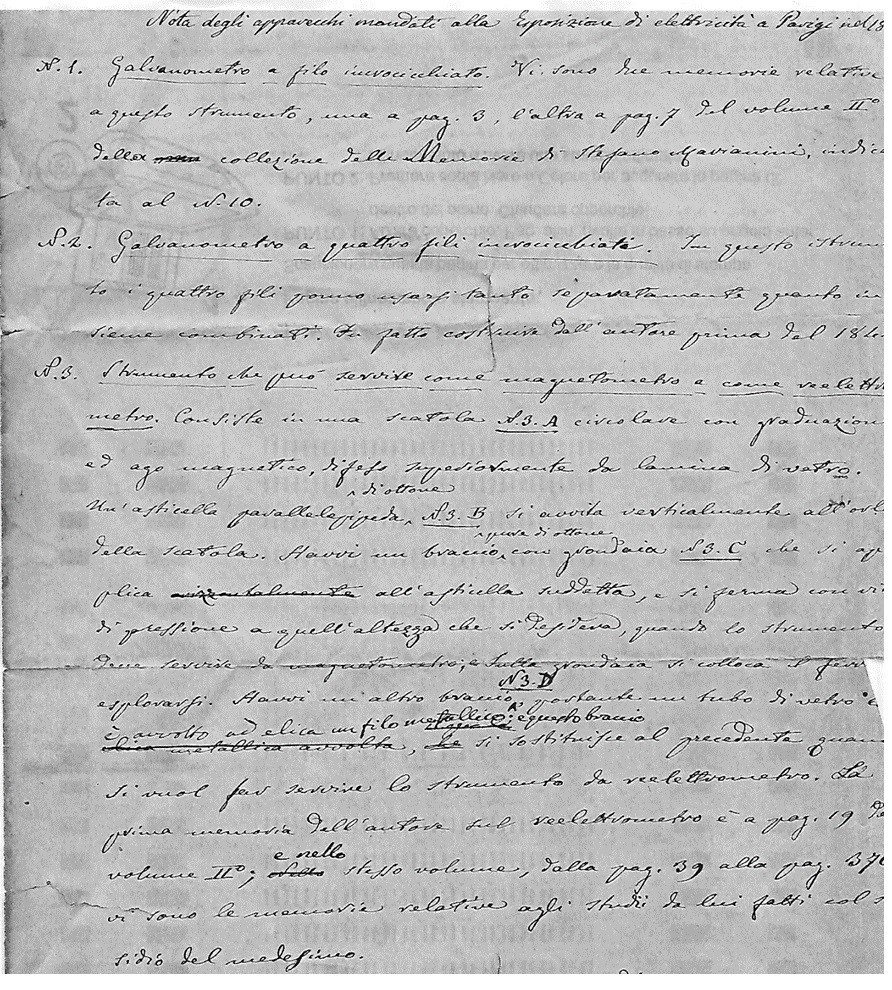 Nota degli apparecchi mandati alla Esposizione di elettricità a Parigi nel 18
N. 1. Galvanometro a filo incrocicchiato. Vi sono due memorie relative
a questo strumento, una a pag. 3, l'altra a pag. 7 del volume II°
della collezione delle Memorie di Stefano Marianini, indica
ta al N. 10.
N. 2. Galvanometro a quattro fili incrocicchiati. In questo istrumen
to i quattro fili ponno usarsi tanto separatamente quanto in
sieme combinati. Fu fatto costruire dall'autore prima del 184
N. 3. Strumento che può servire come magnetometro e come reelettro
metro. Consiste in una scatola N. 3. A circolare con graduazion
ed ago magnetico, difesa superiormente da lamina di vetro.
^ di ottone
Un'asticella parallelepipeda, N. 3. B si avvita verticalmente all'orl
^ pure di ottone
della scatola. Havvi un braccio, con grondaia N 3. C che si ap
plica orizzontalmente all'asticella suddetta, e si ferma con vi
di pressione a quell'altezza che si desidera, quando lo strumento
deve servire da magnetometro; e sulla grondaia si colloca il ferr
N 3. D
esplorarsi. Havvi un altro braccio ^ portante un tubo di vetro
è avvolto ad elica un filo metallico; e questo braccio
elica metallica avvolta, si sostituisce al precedente quan
si vuol far servire lo strumento da reelettrometro. La
prima memoria dell'autore sul reelettrometro è a pag. 19 de
e nello
volume II°; stesso volume, dalla pag. 39 alla pag. 376
vi sono le memorie relative agli studii da lui fatti col s
sidio del medesimo.